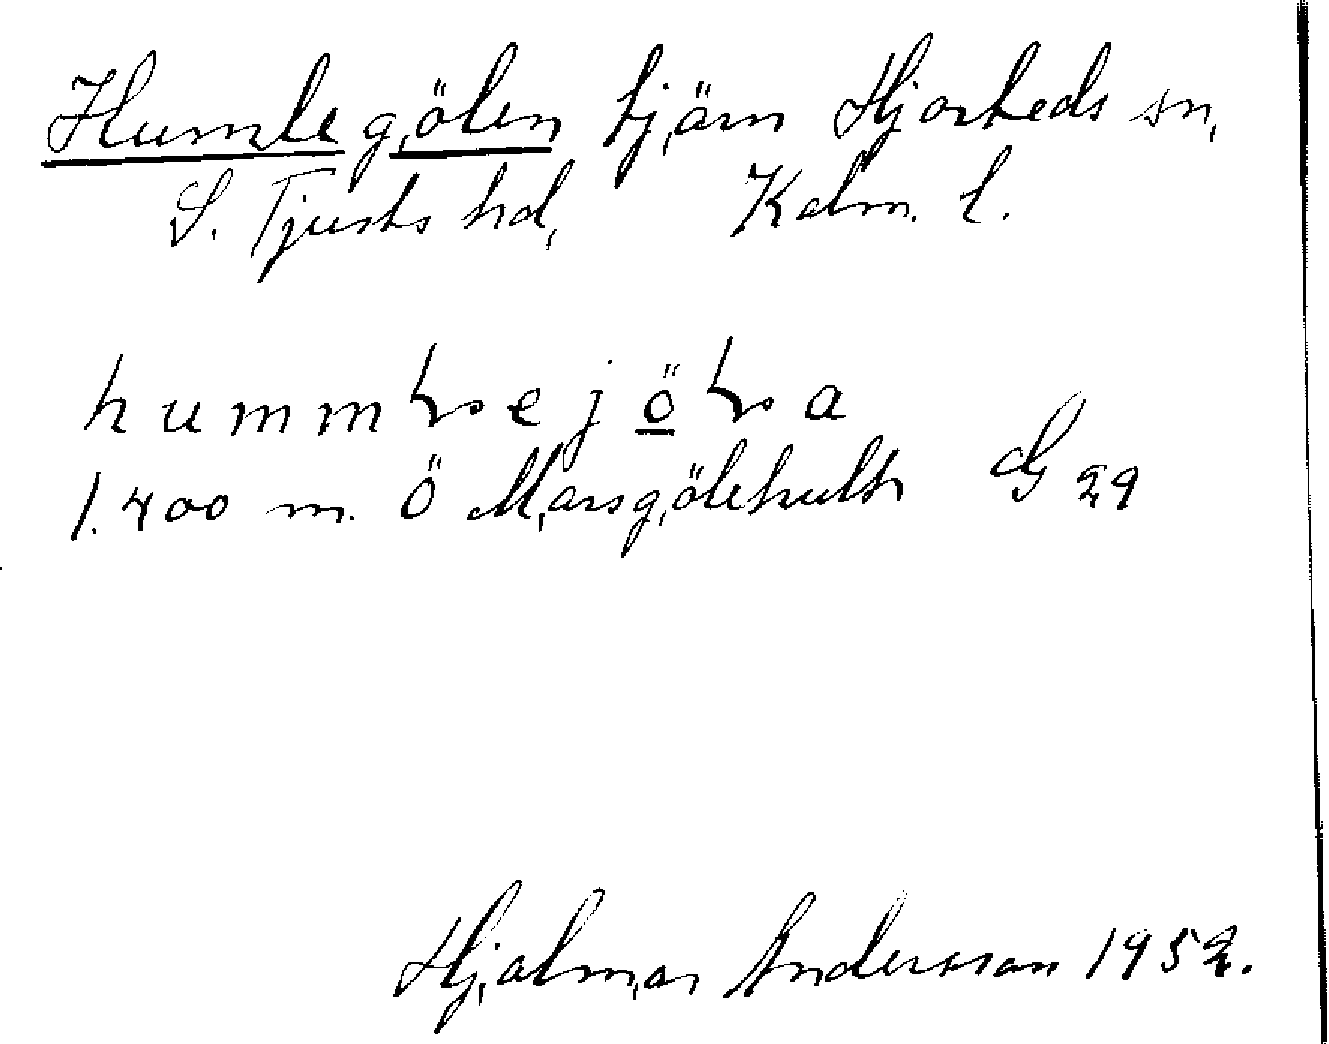 Humlegölen tjärn Hjorteds sn,
S. Tjusts hd, Kalm. l.
hummɭejöɭa
1.400 m. Ö Marsgölehult G 29
Hjalmar Andersson 1952.